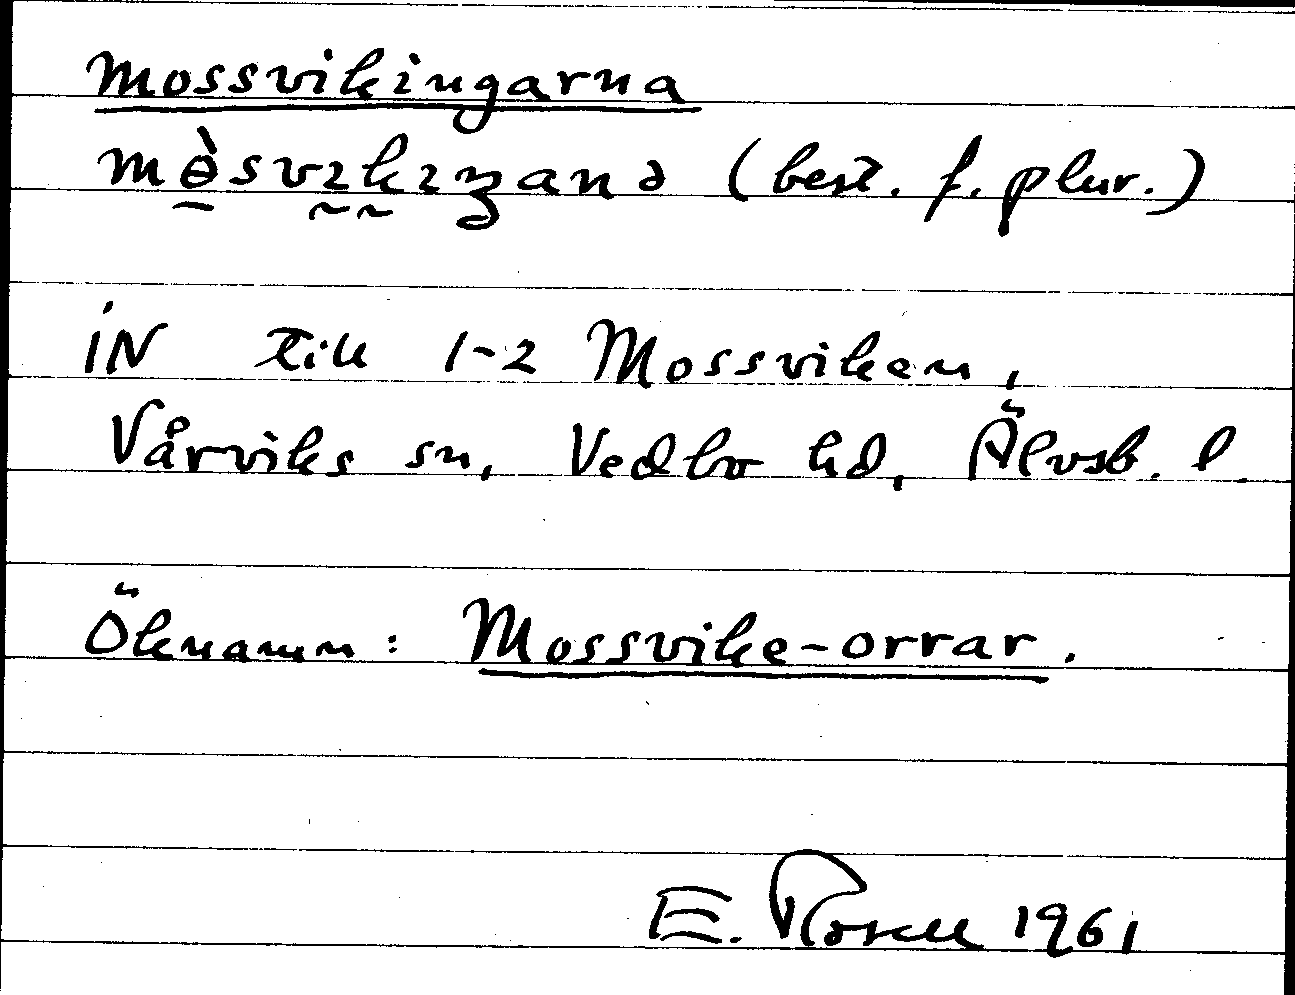 Mossvikingarna
mɵ̀svıkıŋanə (best. f. plur.)
iN till 1-2 Mossviken,
Vårviks sn, Vedbo hd, Älvsb. l.
Öknamn: Mossvike-orrar.
E. Rosell 1961